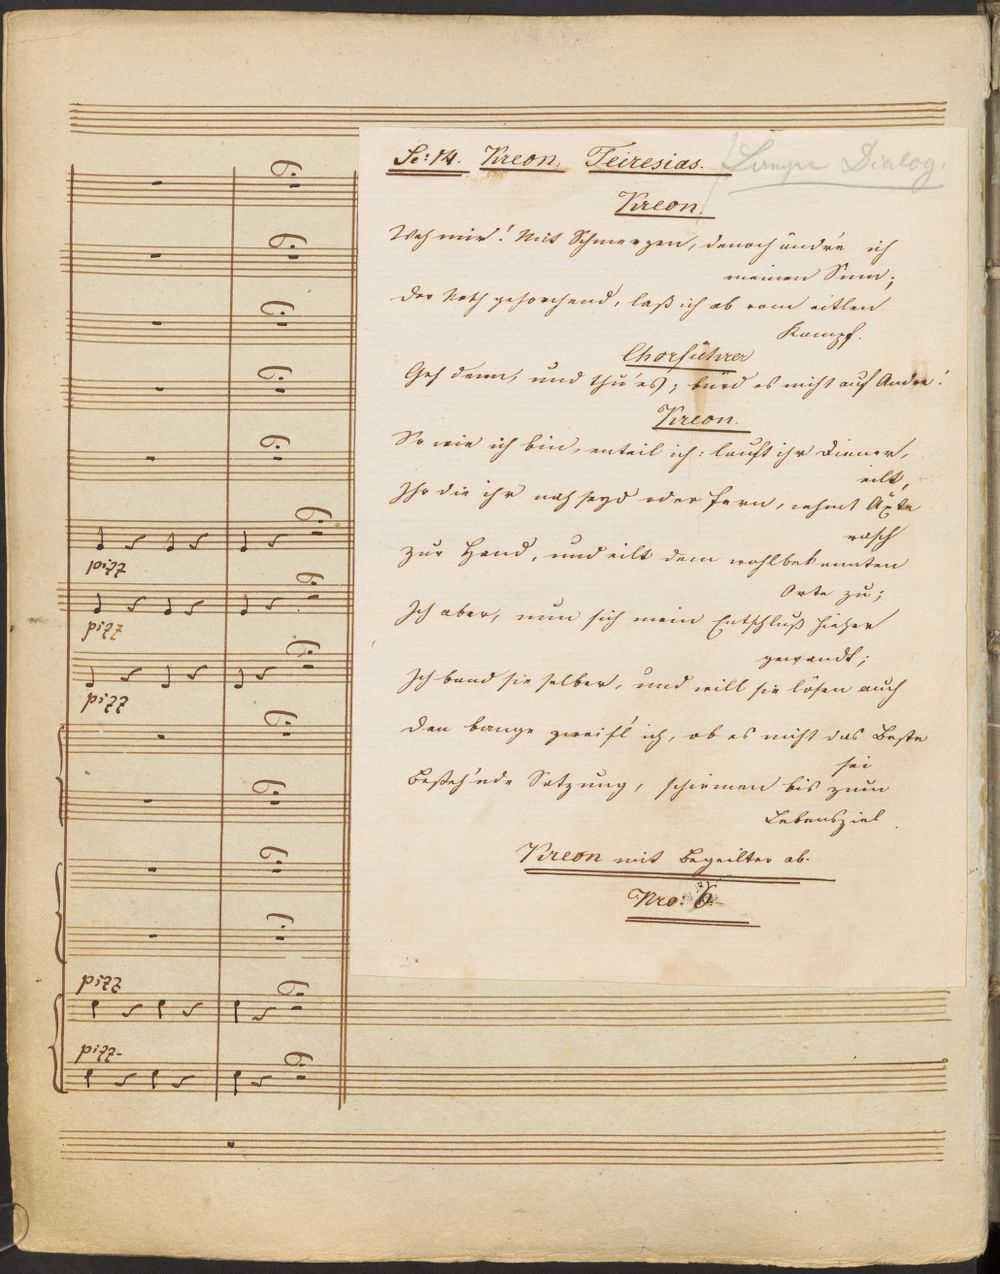 Sc: 14. Kreon. Teiresias. Langer Dialog.
Kreon.
Weh mir! Mit Schmerzen, dennoch ändr'e ich
meinen Sinn;
der Noth gehorchend, laß ich ab vom eitlen
Kampf.
Chorführer
Geh denn, und thu' es; bürd es nicht auf Andre!
Kreon.
So wie ich bin, enteil ich: lauft ihr Diener,
eilt,
Ihr die ihr nah seyd oder fern, nehmt Äxte
rasch
zur Hand, und eilt dem wohlbekannten
Orte zu;
Ich aber, nun sich mein Entschluß hieher
gewandt;
Ich band sie selber, und will sie lösen auch
den bange zweifl' ich, ob es nicht das Beste
sei
Besteh'nde Satzung, schirmen bis zum
Lebensziel.
Kreon mit Begleiter ab.
Nro: 6.
pizz
pizz
pizz
pizz
pizz.